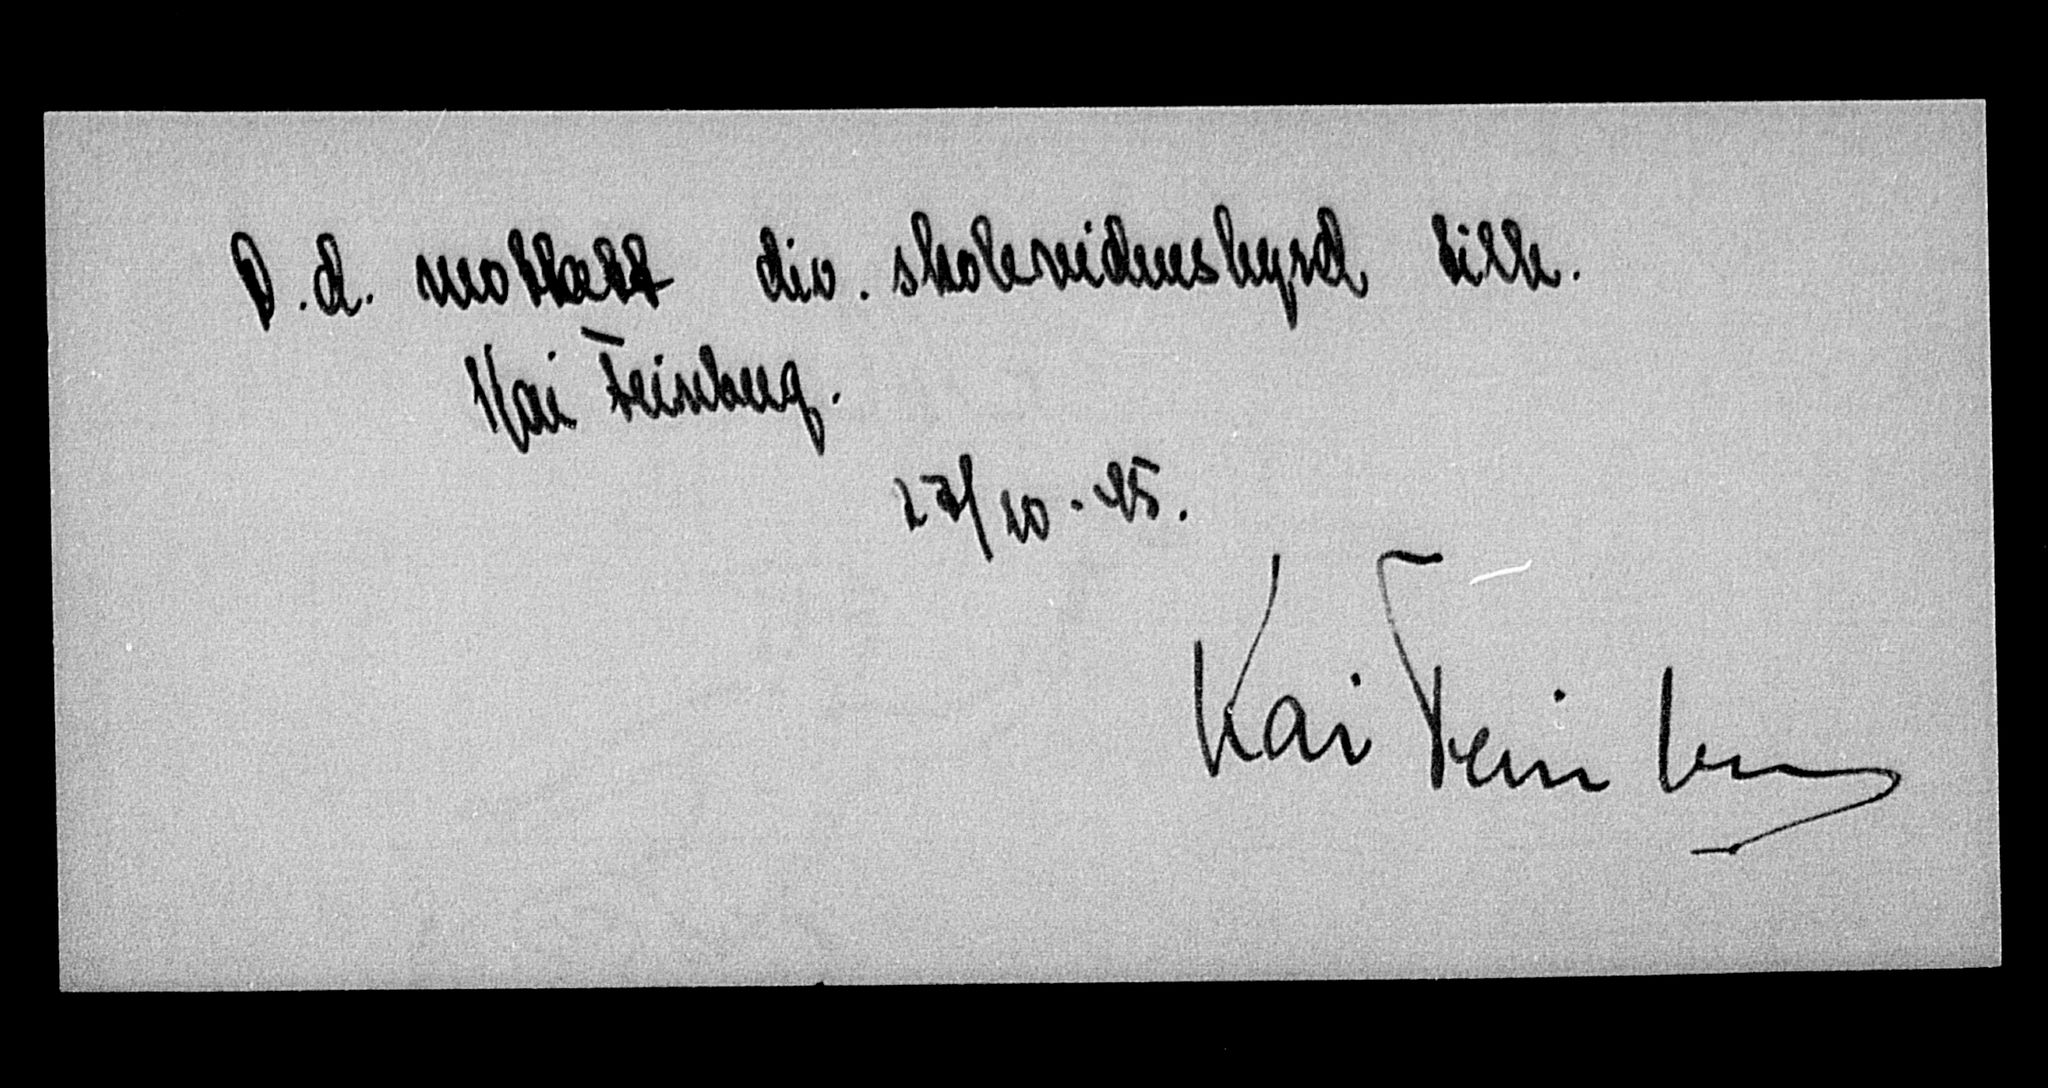 D.d. mottatt div. skolevidneskyrd tilh.
Kai Feinberg.
27/10-45.
Kai Feinberg